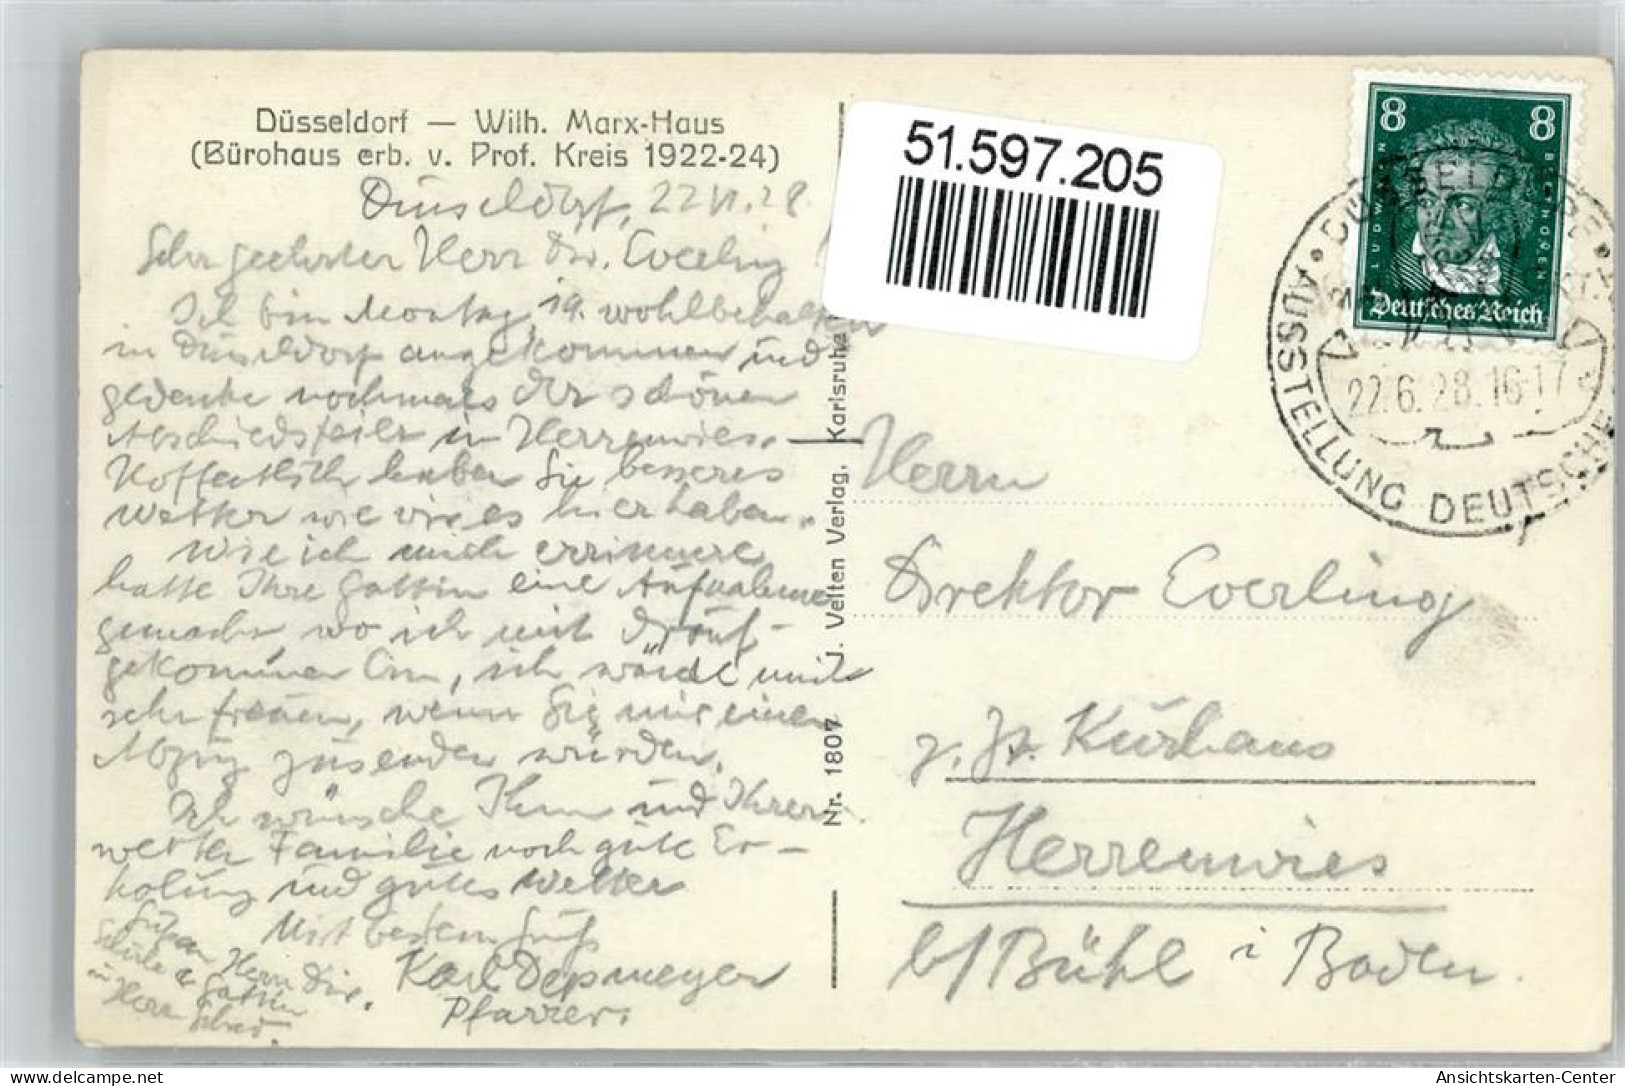 Düsseldorf — Wilh. Marx-Haus
(Bürohaus erb. v. Prof. Kreis 1922-24)
Düsseldorf, 22 VI. 28
Sehr geehrter Herr Dir. Everling
Ich bin Montag 19. wohlbehalten
in Düsseldorf angekommen und
gedenke nochmals der schönen
Abschiedsfeier in Herrenwies.
Hoffentlich haben Sie besseres
Wetter wie wir es hier haben.
Wie ich mich errinnere
hatte Ihre Gattin eine Aufnahme
gemacht wo ich mit drauf-
gekommen bin, ich würde mich
sehr freuen, wenn Sie mir einen
Abzug zusenden würden.
Ich wünsche Ihnen und Ihrer
werten Familie noch gute Er-
holung und gutes Wetter
Mit bestem Gruß
Karl Depmeyer
Pfarrer.
Grüße an Herrn Dir.
u Gattin
u Herrn
Nr. 1807 J. Velten Verlag, Karlsruhe
51.597.205
8 8
LUDWIG VAN BEETHOVEN
Deutsches Reich
DÜSSELDORF
22.6.28.16-17
AUSSTELLUNG DEUTSCHE
Herrn
Direktor Everling
z. Zt. Kurhaus
Herrenwies
b/Bühl i Baden
www.delcampe.net
AK_Farmer
Ansichtskarten-Center